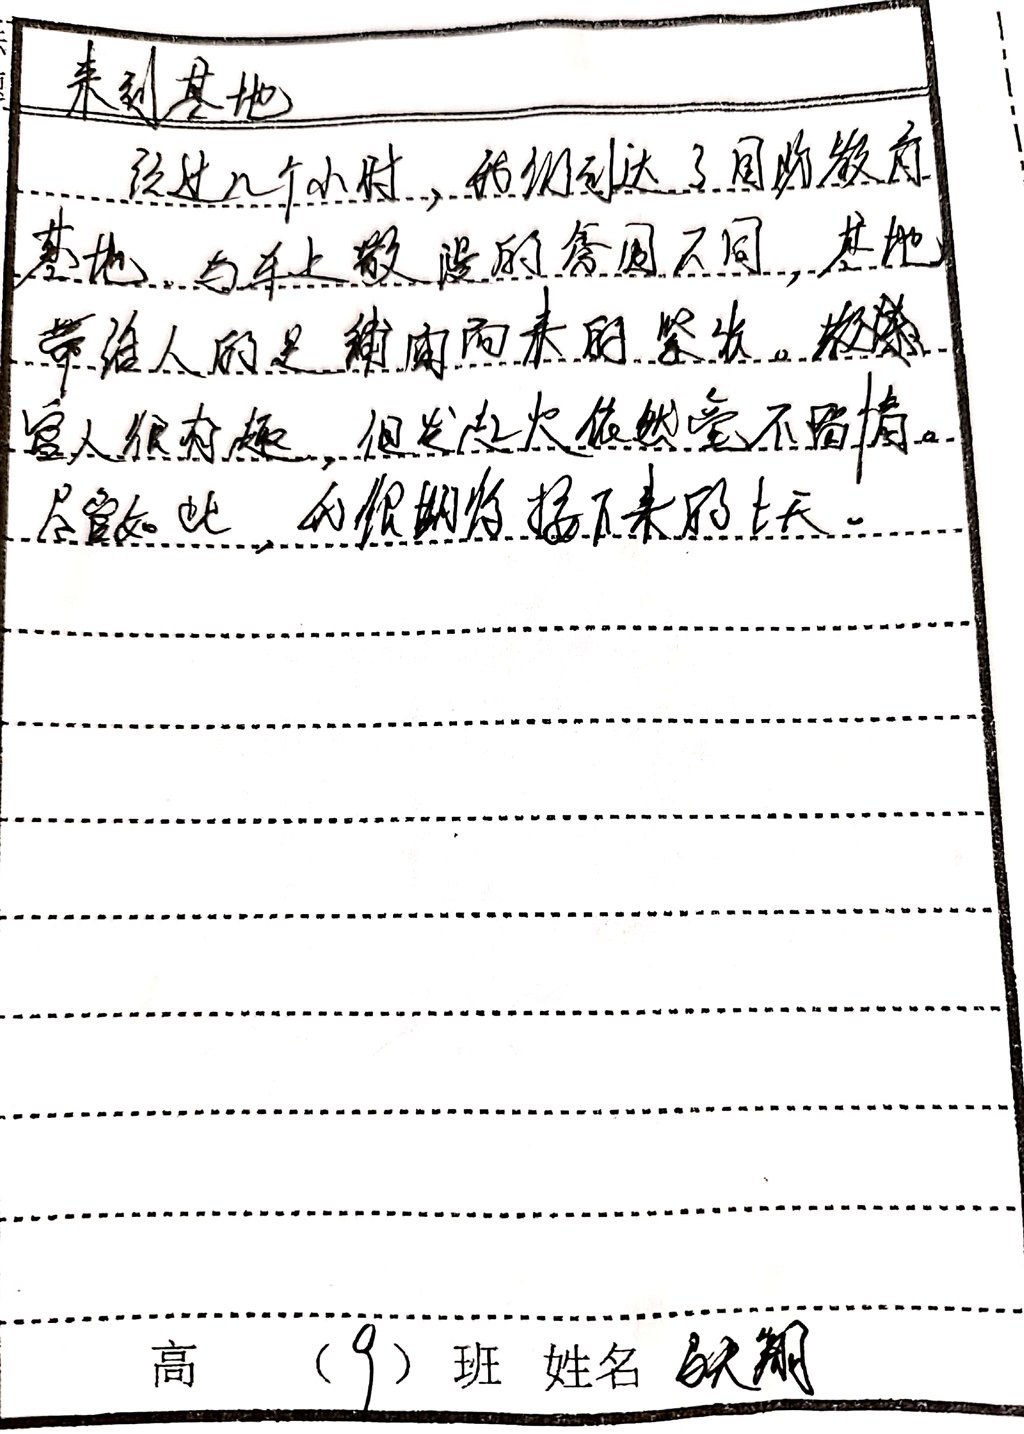 来到基地
经过几个小时，我们到达了国防教育
基地。与车上散漫的氛围不同，基地
带给人的是铺面而来的紧张。教练
客人很有趣，但发起火依然毫不留情。
尽管如此，我很期待接下来的七天。
高 （9） 班 姓名 马天翔